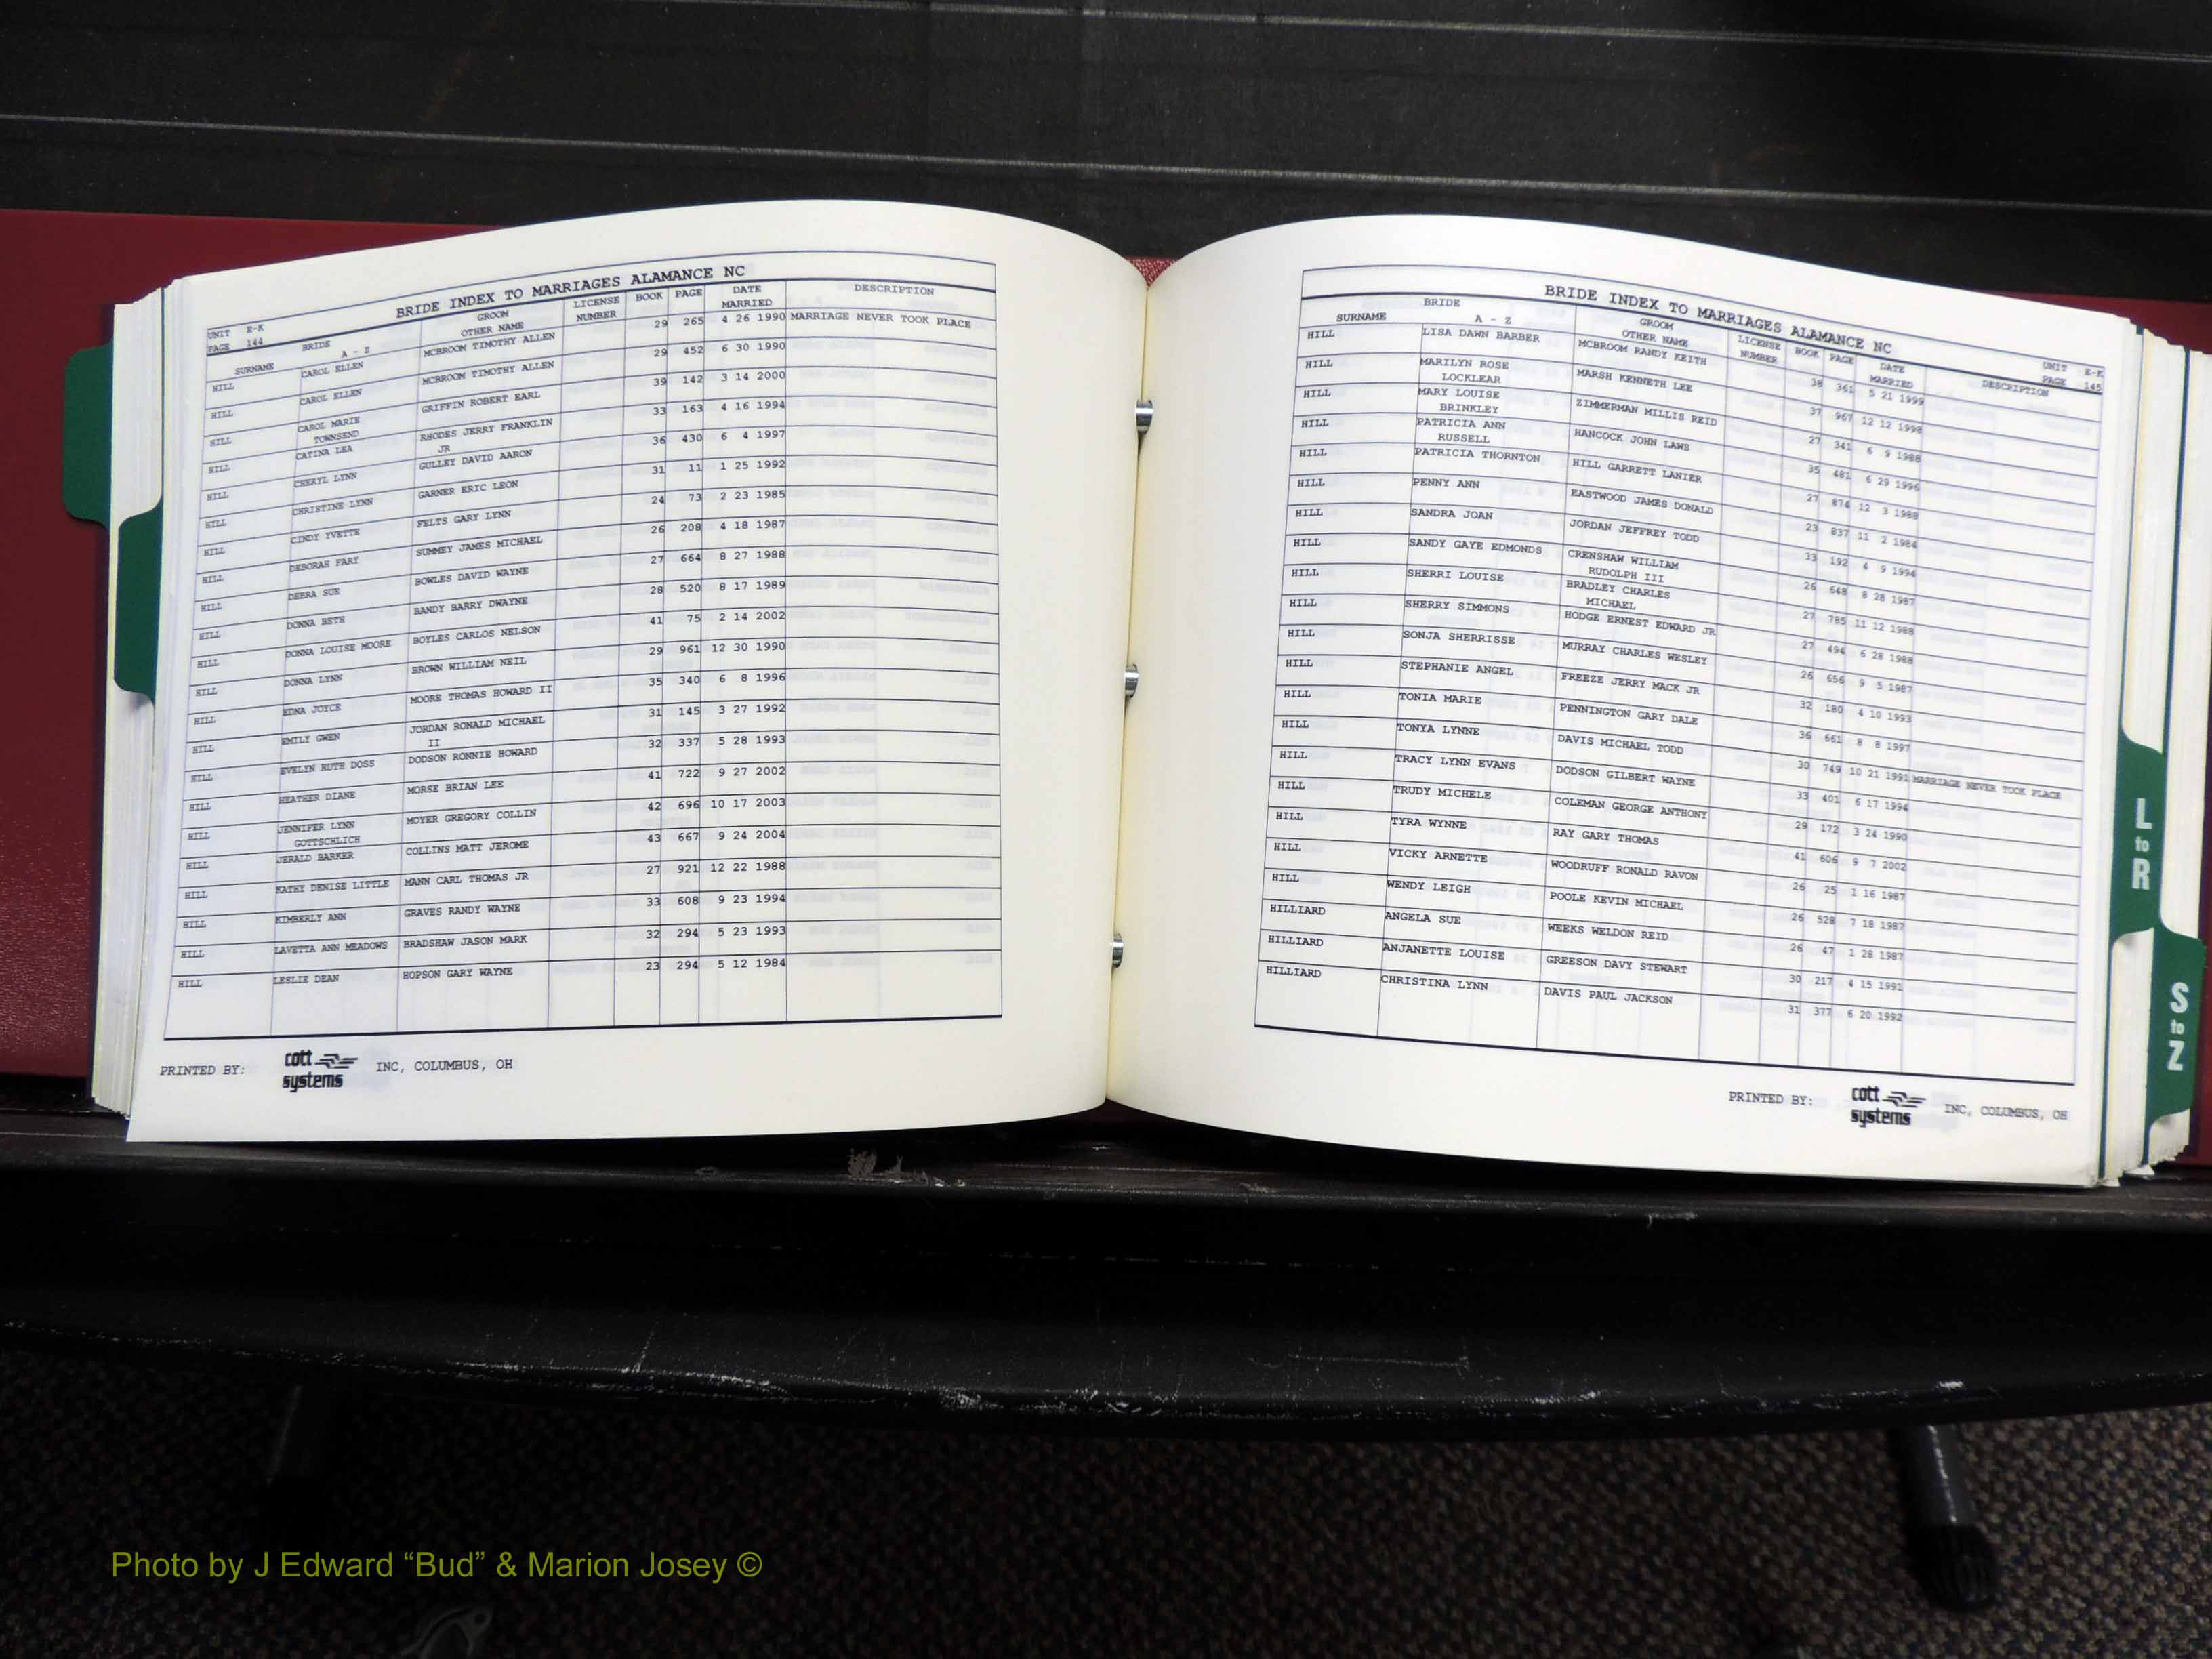 BRIDE INDEX TO MARRIAGES ALAMANCE NC
UNIT E-K
PAGE 144
SURNAME BRIDE A - Z GROOM OTHER NAME LICENSE NUMBER BOOK PAGE DATE MARRIED DESCRIPTION
HILL CAROL ELLEN MCBROOM TIMOTHY ALLEN 29 265 4 26 1990 MARRIAGE NEVER TOOK PLACE
HILL CAROL ELLEN MCBROOM TIMOTHY ALLEN 29 452 6 30 1990
HILL CAROL MARIE GRIFFIN ROBERT EARL 39 142 3 14 2000
TOWNSEND
HILL CATINA LEA RHODES JERRY FRANKLIN 33 163 4 16 1994
JR
HILL CHERYL LYNN GULLEY DAVID AARON 36 430 6 4 1997
HILL CHRISTINE LYNN GARNER ERIC LEON 31 11 1 25 1992
HILL CINDY YVETTE FELTS GARY LYNN 24 73 2 23 1985
HILL DEBORAH FARY SUMMEY JAMES MICHAEL 26 208 4 18 1987
HILL DEBRA SUE BOWLES DAVID WAYNE 27 664 8 27 1988
HILL DONNA BETH BANDY BARRY DWAYNE 28 520 8 17 1989
HILL DONNA LOUISE MOORE BOYLES CARLOS NELSON 41 75 2 14 2002
HILL DONNA LYNN BROWN WILLIAM NEIL 29 961 12 30 1990
HILL EDNA JOYCE MOORE THOMAS HOWARD II 35 340 6 8 1996
HILL EMILY GWEN JORDAN RONALD MICHAEL 31 145 3 27 1992
II
HILL EVELYN RUTH DOSS DODSON RONNIE HOWARD 32 337 5 28 1993
HILL HEATHER DIANE MORSE BRIAN LEE 41 722 9 27 2002
HILL JENNIFER LYNN MOYER GREGORY COLLIN 42 696 10 17 2003
GOTTSCHLICH
HILL JERALD BARKER COLLINS MATT JEROME 43 667 9 24 2004
HILL KATHY DENISE LITTLE MANN CARL THOMAS JR 27 921 12 22 1988
HILL KIMBERLY ANN GRAVES RANDY WAYNE 33 608 9 23 1994
HILL LAVETTA ANN MEADOWS BRADSHAW JASON MARK 32 294 5 23 1993
HILL LESLIE DEAN HOPSON GARY WAYNE 23 294 5 12 1984
PRINTED BY: cott systems INC, COLUMBUS, OH
BRIDE INDEX TO MARRIAGES ALAMANCE NC
UNIT E-K
PAGE 145
SURNAME BRIDE A - Z GROOM OTHER NAME LICENSE NUMBER BOOK PAGE DATE MARRIED DESCRIPTION
HILL LISA DAWN BARBER MCBROOM RANDY KEITH 38 361 5 21 1999
HILL MARILYN ROSE MARSH KENNETH LEE 37 967 12 12 1998
LOCKLEAR
HILL MARY LOUISE ZIMMERMAN MILLIS REID 27 341 6 9 1988
BRINKLEY
HILL PATRICIA ANN HANCOCK JOHN LAWS 35 481 6 29 1996
RUSSELL
HILL PATRICIA THORNTON HILL GARRETT LANIER 27 874 12 3 1988
HILL PENNY ANN EASTWOOD JAMES DONALD 23 837 11 2 1984
HILL SANDRA JOAN JORDAN JEFFREY TODD 33 192 4 9 1994
HILL SANDY GAYE EDMONDS CRENSHAW WILLIAM 26 648 8 28 1987
RUDOLPH III
HILL SHERRI LOUISE BRADLEY CHARLES 27 785 11 12 1988
MICHAEL
HILL SHERRY SIMMONS HODGE ERNEST EDWARD JR 27 494 6 28 1988
HILL SONJA SHERRISSE MURRAY CHARLES WESLEY 26 656 9 5 1987
HILL STEPHANIE ANGEL FREEZE JERRY MACK JR 32 180 4 10 1993
HILL TONIA MARIE PENNINGTON GARY DALE 36 661 8 8 1997
HILL TONYA LYNNE DAVIS MICHAEL TODD 30 749 10 21 1991 MARRIAGE NEVER TOOK PLACE
HILL TRACY LYNN EVANS DODSON GILBERT WAYNE 33 401 6 17 1994
HILL TRUDY MICHELE COLEMAN GEORGE ANTHONY 29 172 3 24 1990
HILL TYRA WYNNE RAY GARY THOMAS 41 606 9 7 2002
HILL VICKY ARNETTE WOODRUFF RONALD RAVON 26 25 1 16 1987
HILL WENDY LEIGH POOLE KEVIN MICHAEL 26 528 7 18 1987
HILLIARD ANGELA SUE WEEKS WELDON REID 26 47 1 28 1987
HILLIARD ANJANETTE LOUISE GREESON DAVY STEWART 30 217 4 15 1991
HILLIARD CHRISTINA LYNN DAVIS PAUL JACKSON 31 377 6 20 1992
PRINTED BY: cott systems INC, COLUMBUS, OH
L to R
S to Z
Photo by J Edward “Bud” & Marion Josey ©